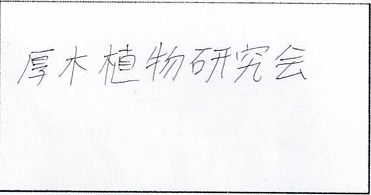 厚木植物研究会